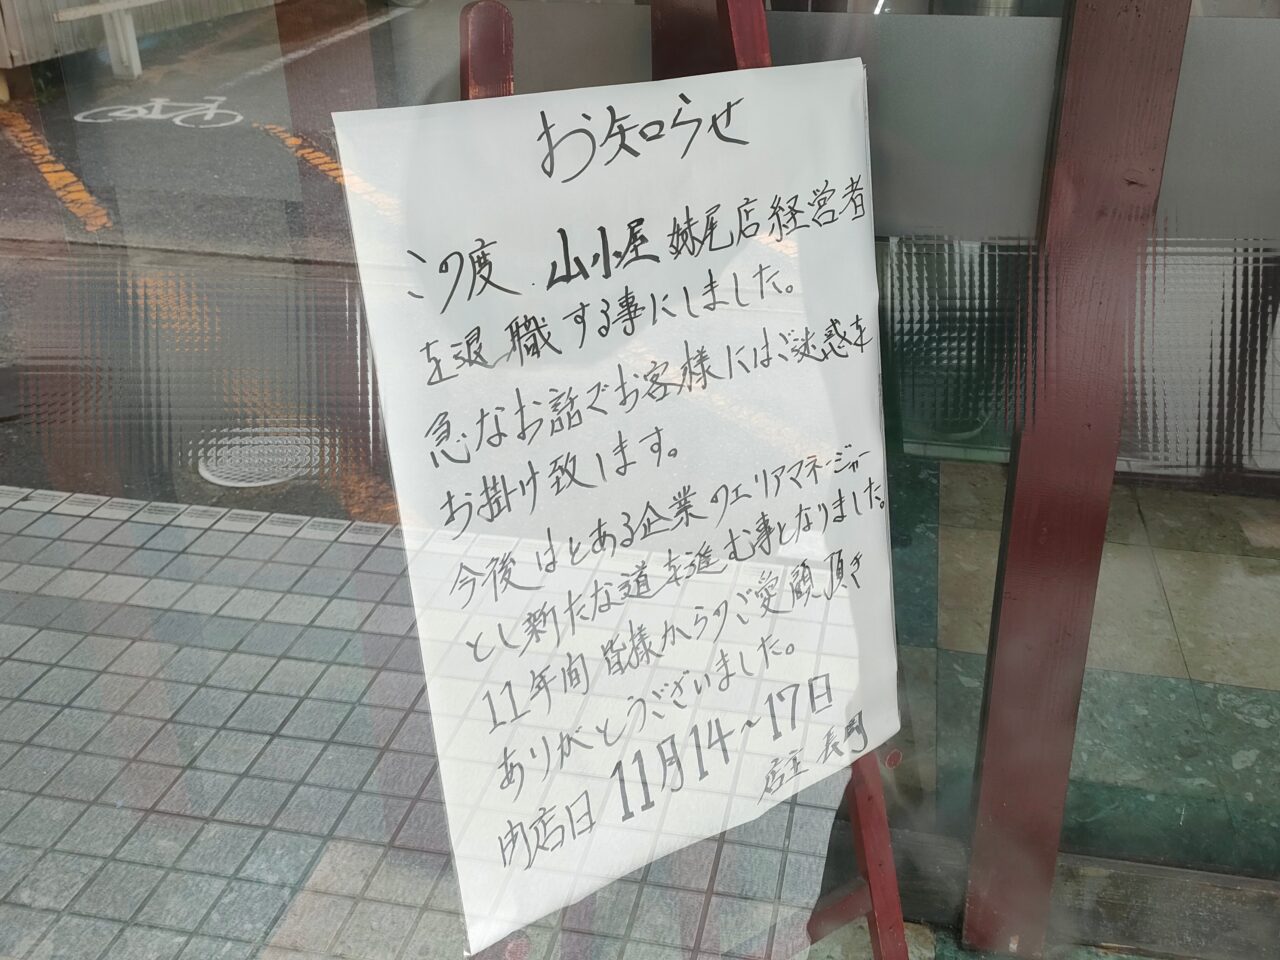 お知らせ
この度 山小屋 妹尾店経営者
を退職する事にしました。
急なお話でお客様にはご迷惑を
お掛け致します。
今後はとある企業のエリアマネージャー
とし新たな道を進む事となりました。
11年間皆様からのご愛顧頂き
ありがとうございました。
閉店日 11月14～17日
店主 長門